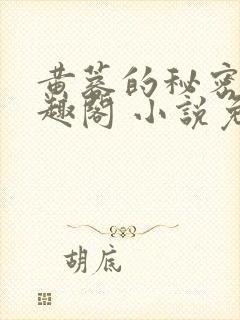 黄墓的秘密
趣阁 小说免
胡底